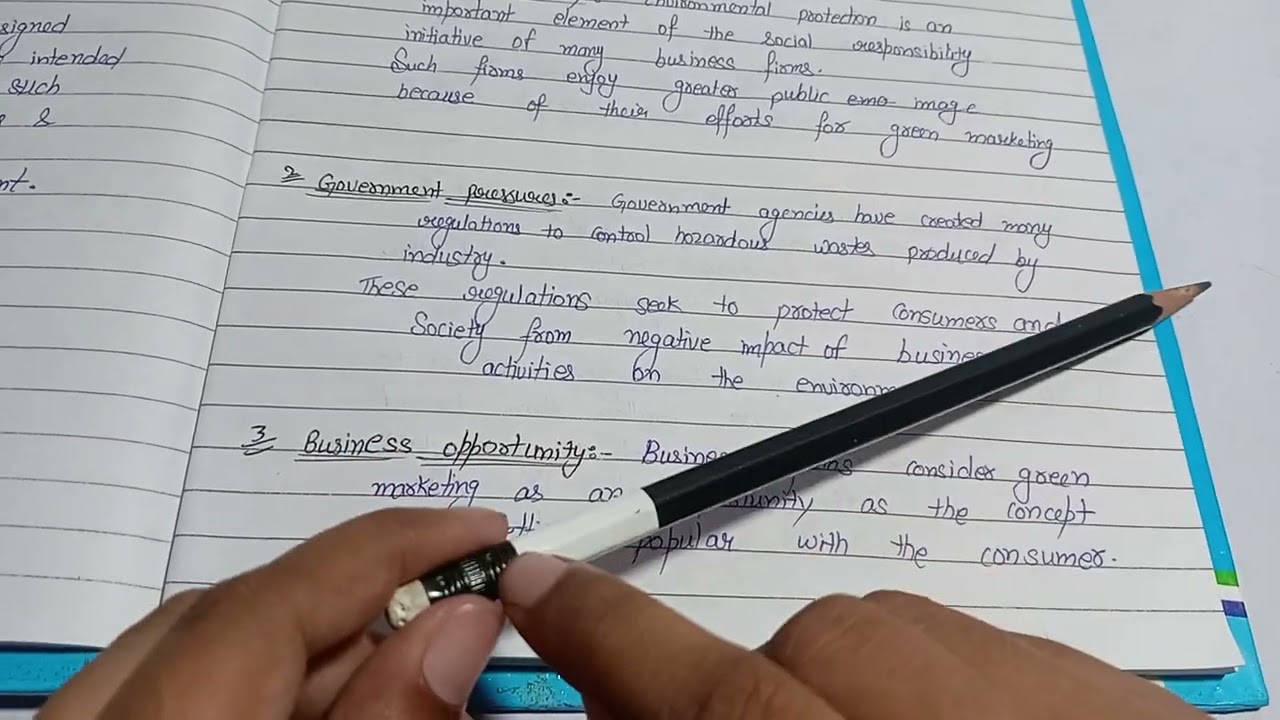 signed
intended
such
&
nt.
Environmental protection is an
important element of the social responsibility
initiative of many business firms.
Such firms enjoy greater public emo image
because of their efforts for green marketing
2 Government pressures:- Government agencies have created many
regulations to control hazardous wastes produced by
industry.
These regulations seek to protect consumers and
Society from negative impact of busines
activities on the environm
3 Business opportunity:- Busines consider green
marketing as an as the concept
popular with the consumer.